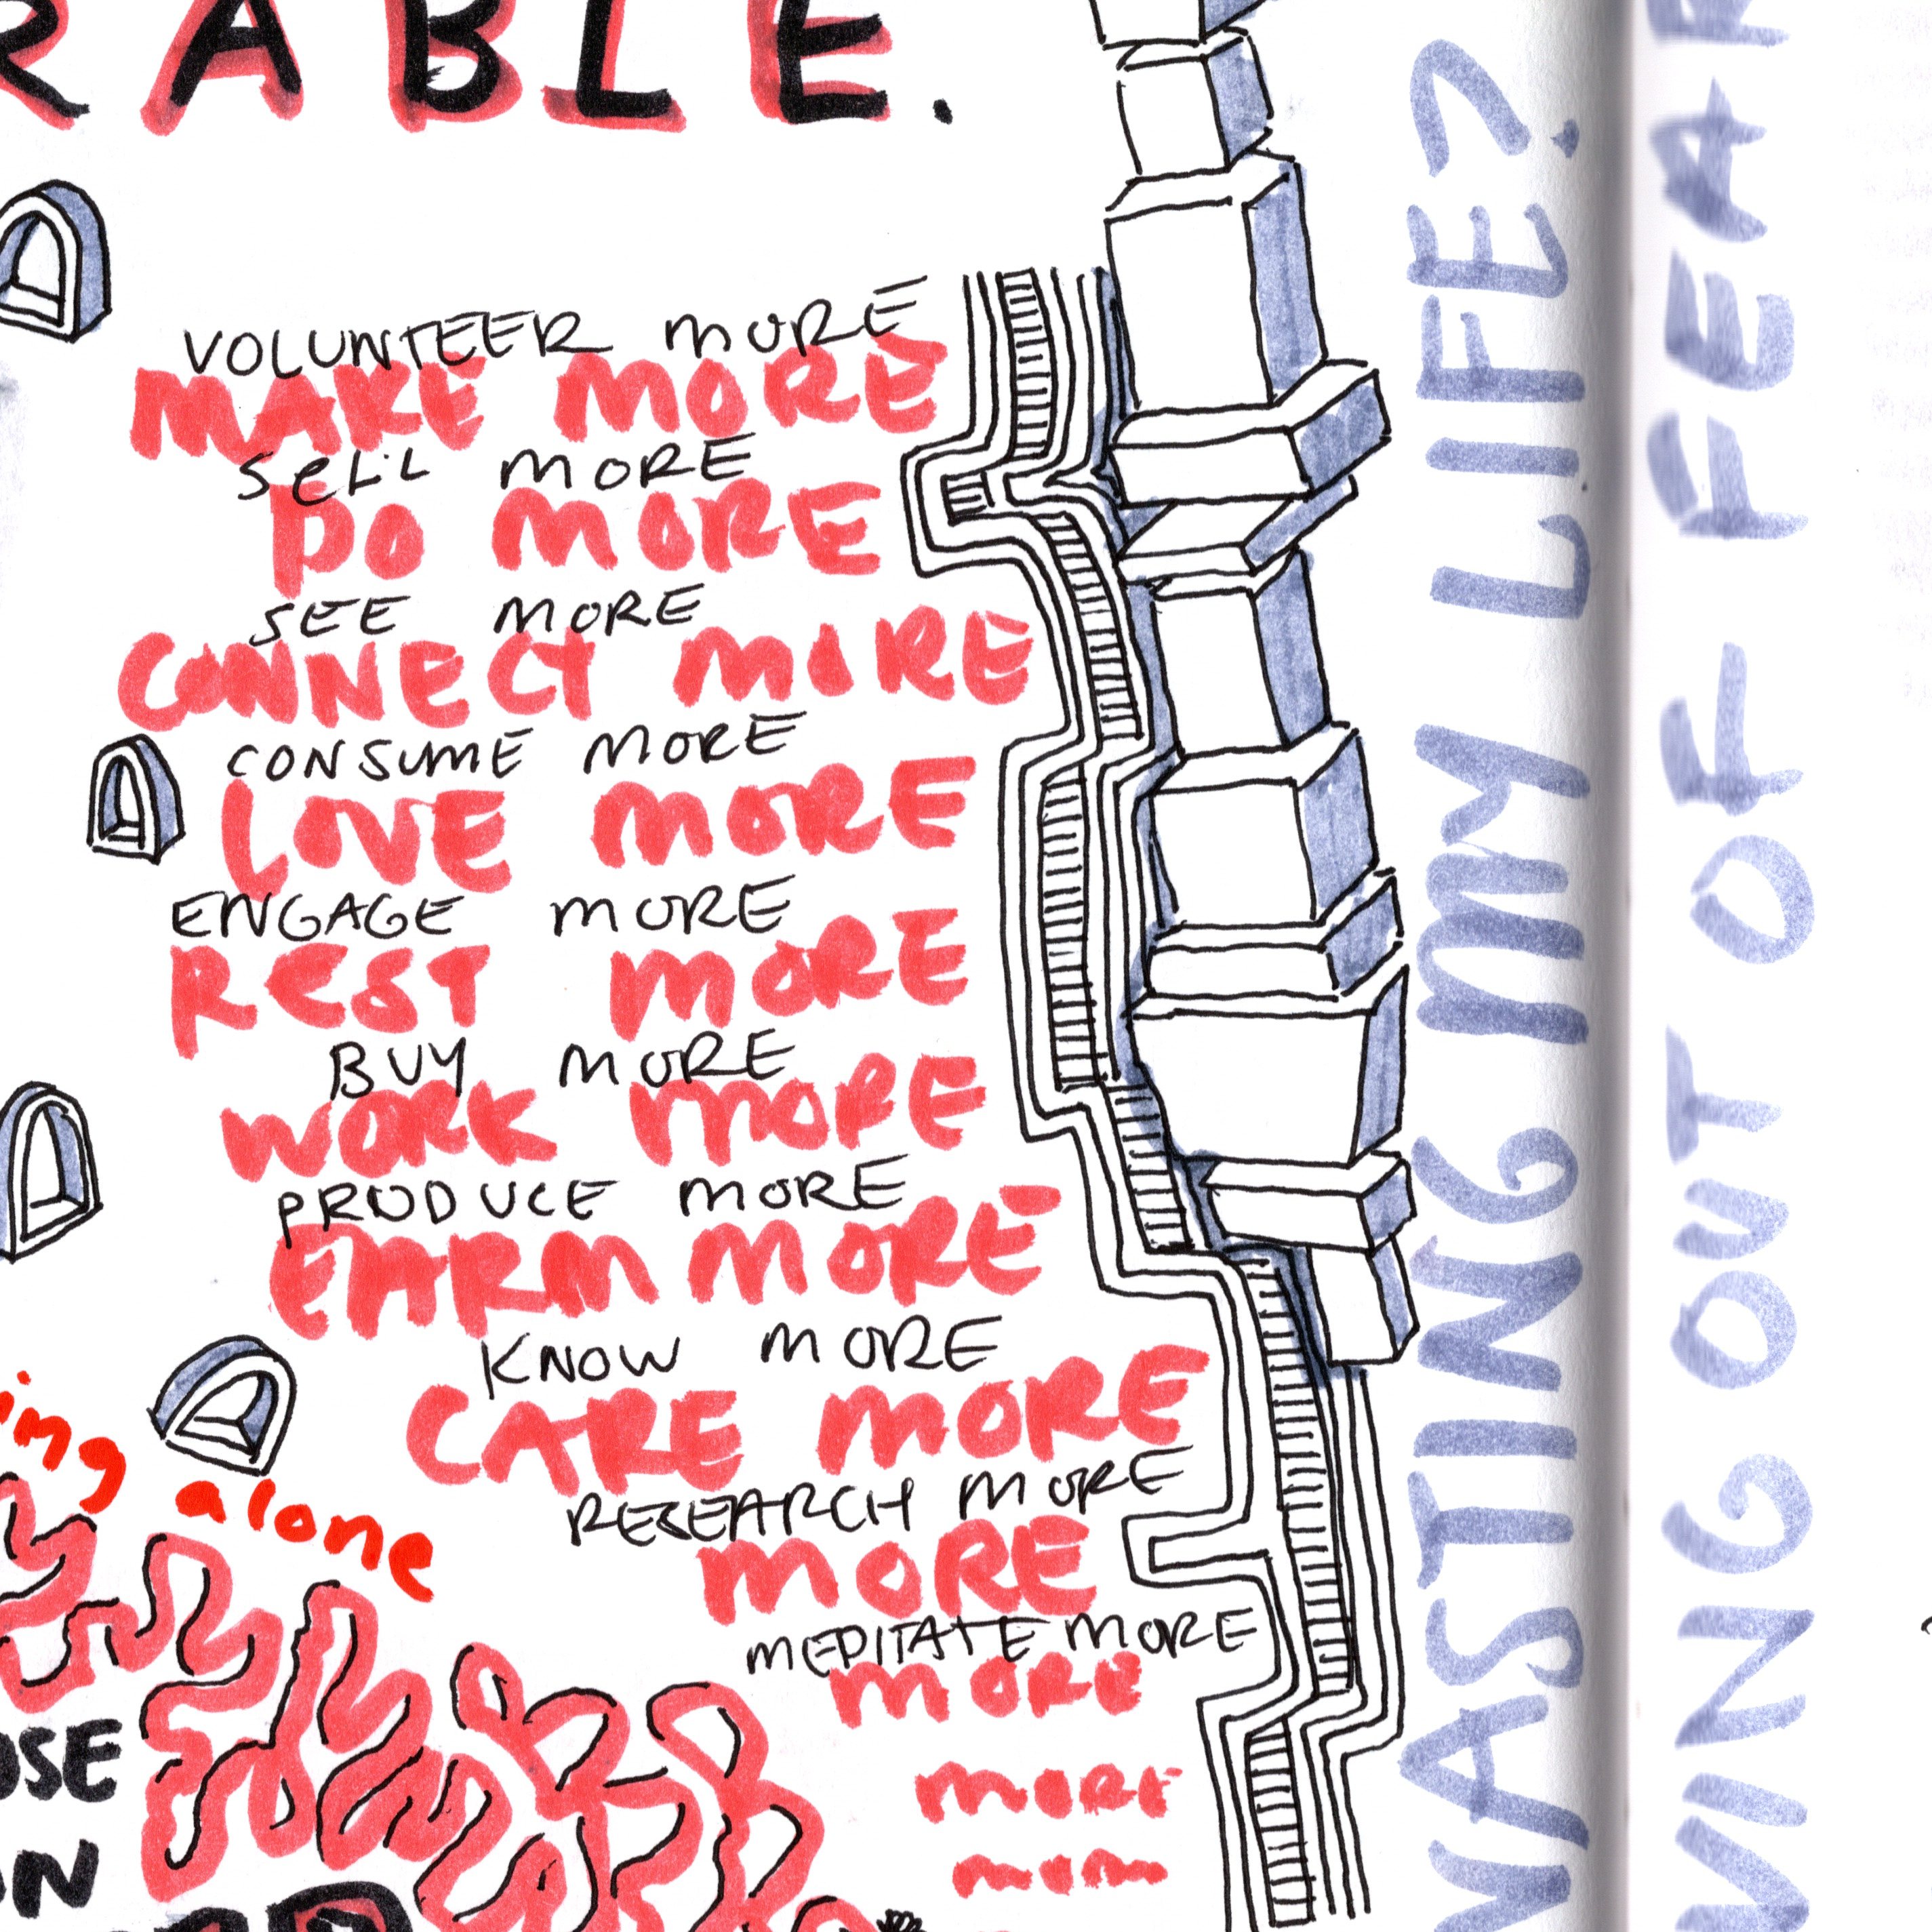 RABLE.
VOLUNTEER MORE
MAKE MORE
SELL MORE
DO MORE
SEE MORE
CONNECT MORE
CONSUME MORE
LOVE MORE
ENGAGE MORE
REST MORE
BUY MORE
WORK MORE
PRODUCE MORE
EARM MORE
KNOW MORE
CARE MORE
RESEARCH MORE
MORE
MEDITATE MORE
MORE
MORE
ing alone
OSE
ON
WASTING MY LIFE?
VING OUT OF FEAR